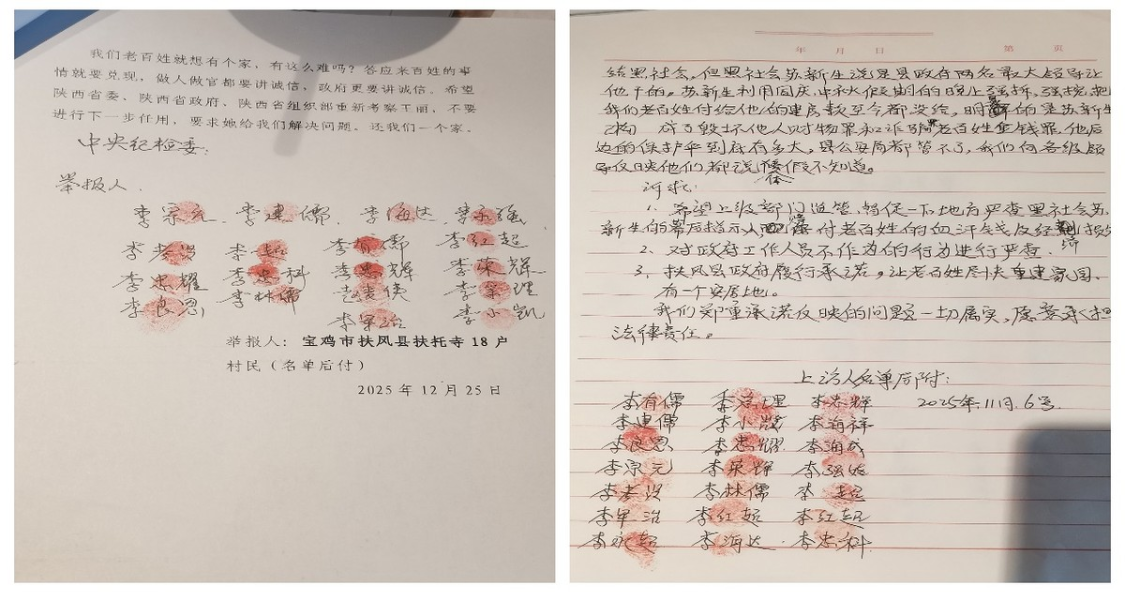 我们老百姓就想有个家，有这么难吗？答应来百姓的事
情就要兑现，做人做官都要讲诚信，政府更要讲诚信。希望
陕西省委、陕西省政府、陕西省组织部重新考察王丽，不要
进行下一步任用，要求她给我们解决问题，还我们一个家。
中央纪检委：
举报人：
李宗元 李建儒 李海达 李永强
李孝义 李超 李有儒 李红超
李忠耀 李忠科 李忠辉 李荣辉
李良恩 李林儒 李宗理
李军治 李小凯
举报人：宝鸡市扶风县扶托寺18户
村民（名单后付）
2025年12月25日
年 月 日 第 页
结黑社会，但黑社会苏新生说是县政府两名最大领导让
他干的。苏新生利用国庆、中秋放假期间的晚上强拆、强挖，把
我们老百姓付给他的建房款至今都没给，明 的是苏新生
成了毁坏他人财物罪和诈骗老百姓金钱罪，他后
边的保护伞到底有多大，县公安局都管不了，我们向各级领
导反映他们都说 假不知道。
诉求：
1. 希望上级部门监管，督促一下地方严查黑社会苏
新生的幕后指示人 付老百姓的血汗钱及经济损失
2. 对政府工作人员不作为的行为进行严查.
3. 扶风县政府履行承诺，让老百姓尽快重建家园、
有一个安居地。
我们郑重承诺反映的问题一切属实，愿意承担
法律责任。
上访人名单后附：
李有儒 李宗理 李忠辉 2025年.11月.6号.
李建儒 李小凯 李海祥
李良恩 李忠耀 李海成
李宗元 李荣辉 李强
李孝义 李林儒 李超
李军治 李红超 李红超
李永超 李海达 李忠科